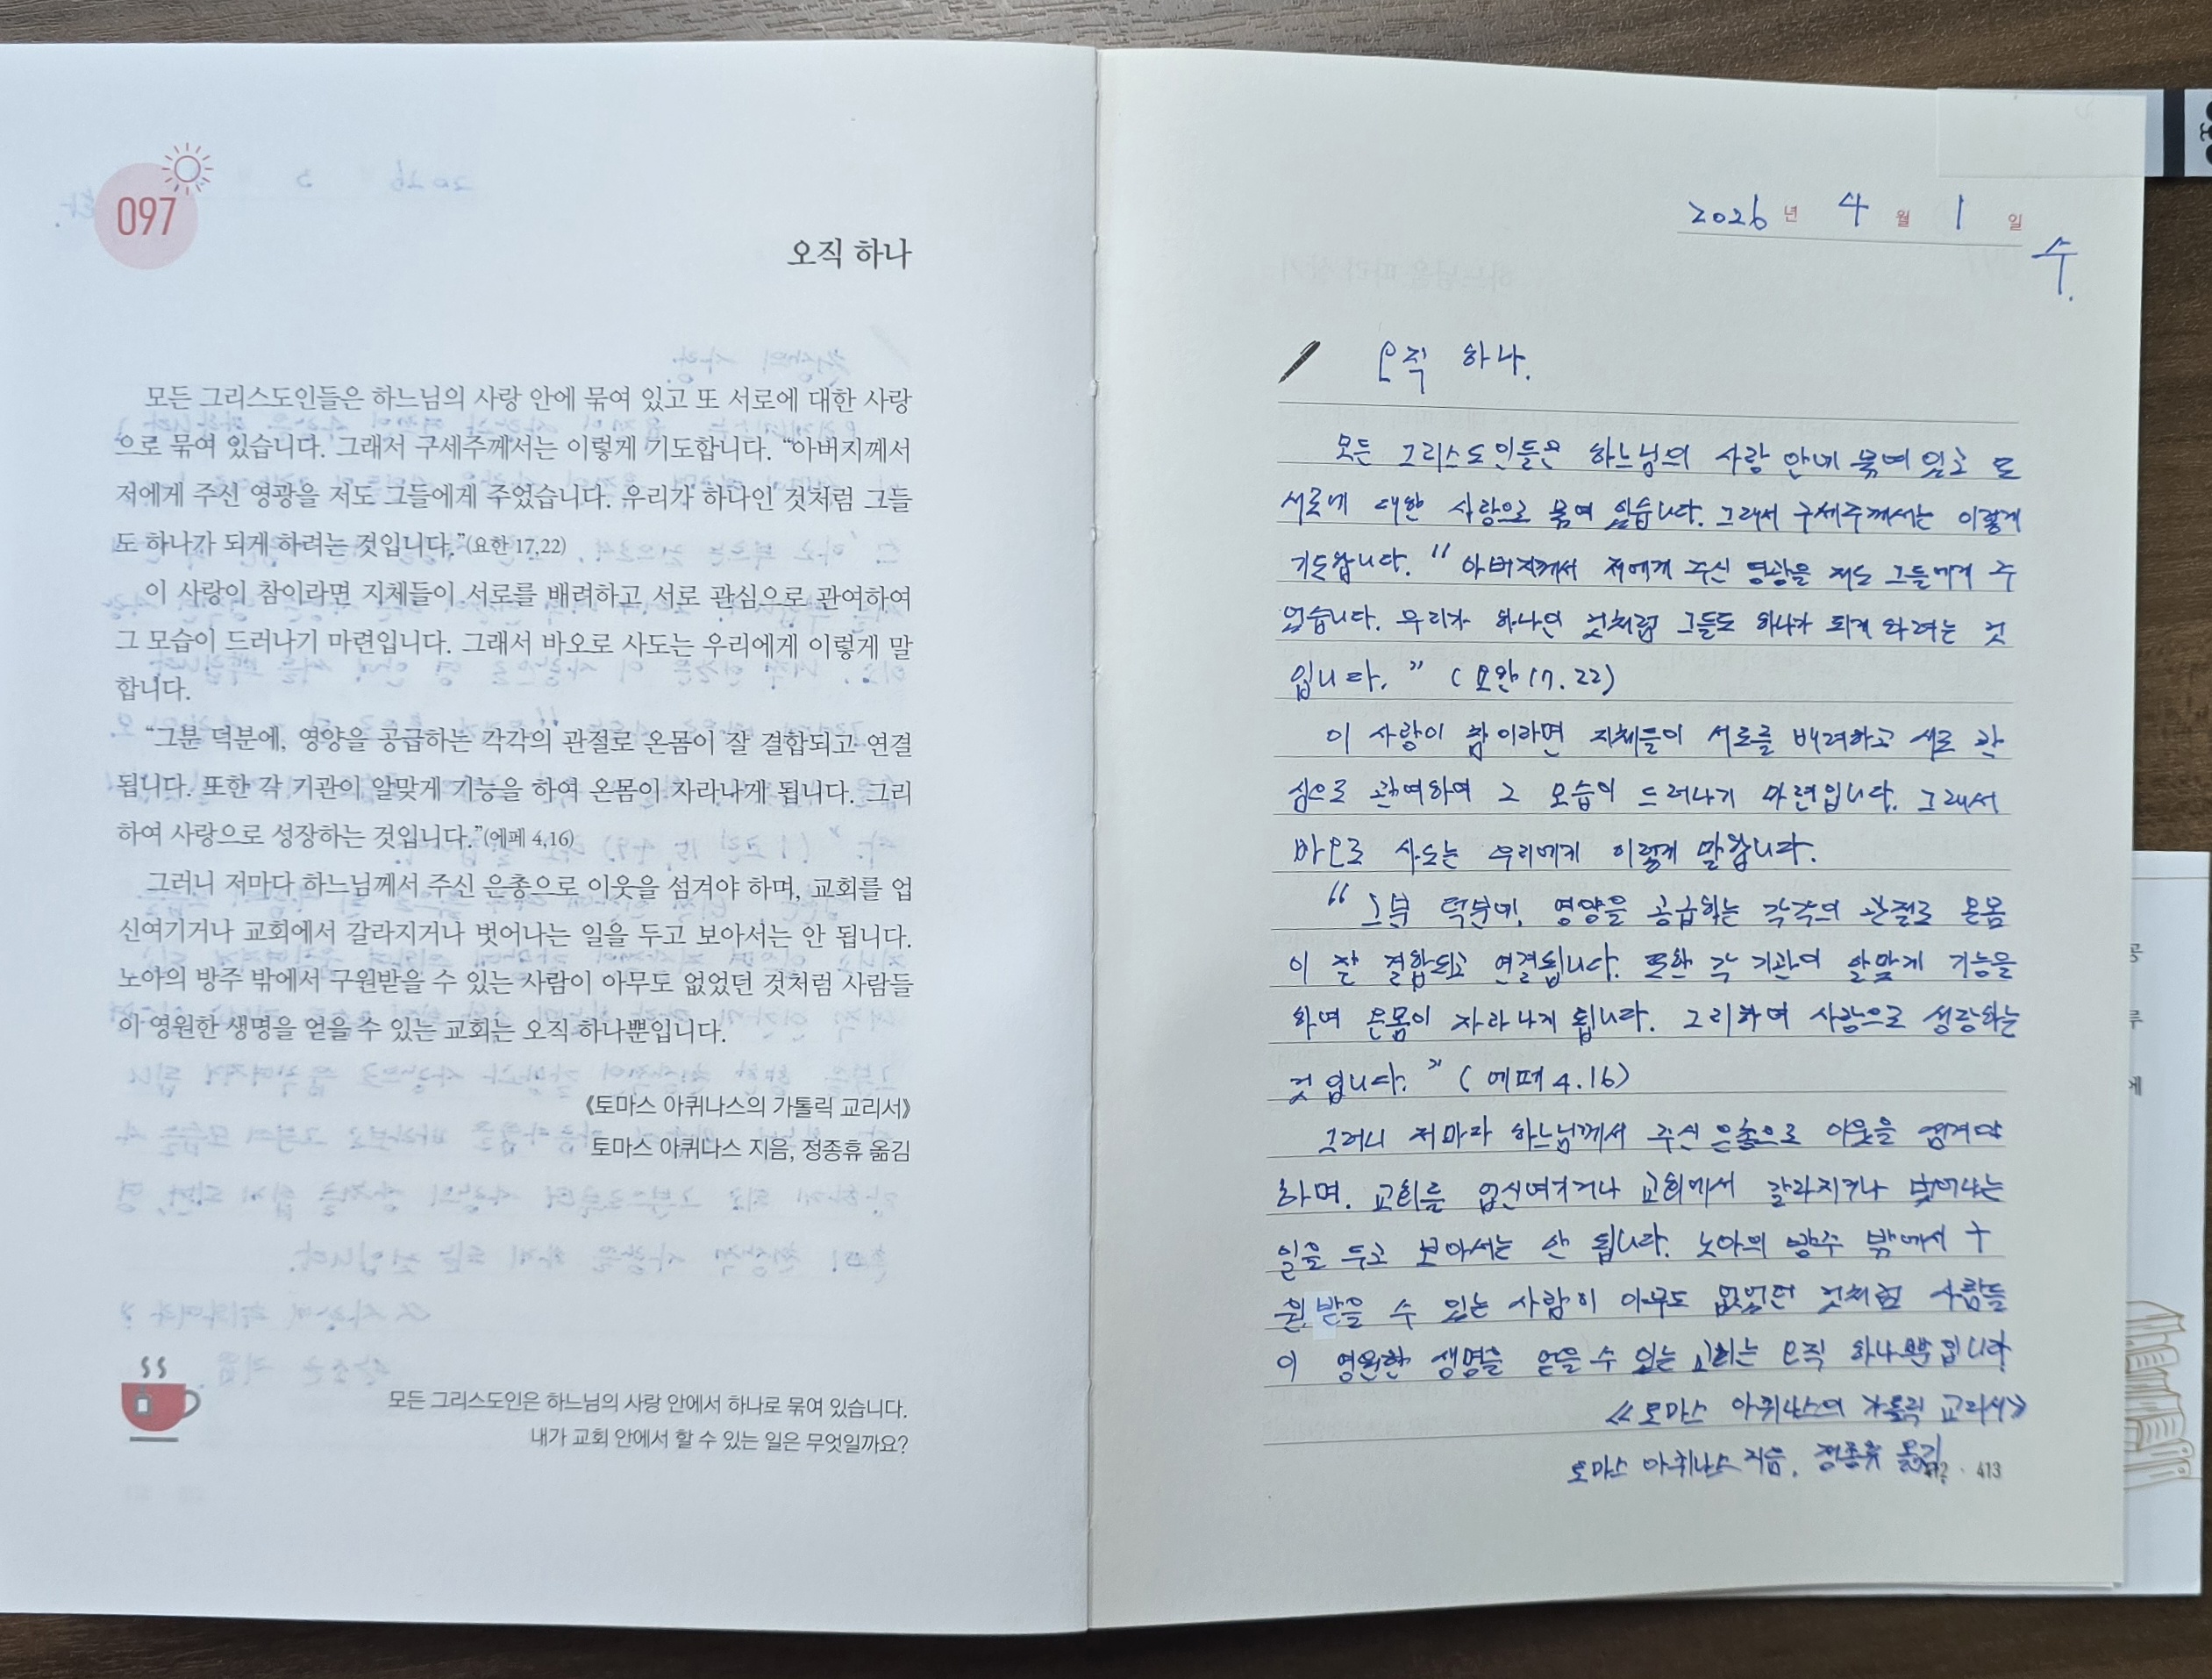 097
오직 하나
모든 그리스도인들은 하느님의 사랑 안에 묶여 있고 또 서로에 대한 사랑
으로 묶여 있습니다. 그래서 구세주께서는 이렇게 기도합니다. “아버지께서
저에게 주신 영광을 저도 그들에게 주었습니다. 우리가 하나인 것처럼 그들
도 하나가 되게 하려는 것입니다.”(요한 17,22)
이 사랑이 참이라면 지체들이 서로를 배려하고 서로 관심으로 관여하여
그 모습이 드러나기 마련입니다. 그래서 바오로 사도는 우리에게 이렇게 말
합니다.
“그분 덕분에, 영양을 공급하는 각각의 관절로 온몸이 잘 결합되고 연결
됩니다. 또한 각 기관이 알맞게 기능을 하여 온몸이 자라나게 됩니다. 그리
하여 사랑으로 성장하는 것입니다.”(에페 4,16)
그러니 저마다 하느님께서 주신 은총으로 이웃을 섬겨야 하며, 교회를 업
신여기거나 교회에서 갈라지거나 벗어나는 일을 두고 보아서는 안 됩니다.
노아의 방주 밖에서 구원받을 수 있는 사람이 아무도 없었던 것처럼 사람들
이 영원한 생명을 얻을 수 있는 교회는 오직 하나뿐입니다.
《토마스 아퀴나스의 가톨릭 교리서》
토마스 아퀴나스 지음, 정종휴 옮김
모든 그리스도인은 하느님의 사랑 안에서 하나로 묶여 있습니다.
내가 교회 안에서 할 수 있는 일은 무엇일까요?
2026 년 4 월 1 일
수.
오직 하나.
모든 그리스도인들은 하느님의 사랑 안에 묶여 있고 또
서로에 대한 사랑으로 묶여 있습니다. 그래서 구세주께서는 이렇게
기도합니다. “아버지께서 저에게 주신 영광을 저도 그들에게 주
었습니다. 우리가 하나인 것처럼 그들도 하나가 되게 하려는 것
입니다.” (요한 17.22)
이 사랑이 참이라면 지체들이 서로를 배려하고 서로 관
심으로 관여하여 그 모습이 드러나기 마련입니다. 그래서
바오로 사도는 우리에게 이렇게 말합니다.
“그분 덕분에, 영양을 공급하는 각각의 관절로 온몸
이 잘 결합되고 연결됩니다. 또한 각 기관이 알맞게 기능을
하여 온몸이 자라나게 됩니다. 그리하여 사랑으로 성장하는
것입니다.” (에페 4.16)
그러니 저마다 하느님께서 주신 은총으로 이웃을 섬겨야
하며. 교회를 업신여기거나 교회에서 갈라지거나 벗어나는
일을 두고 보아서는 안 됩니다. 노아의 방주 밖에서 구
원받을 수 있는 사람이 아무도 없었던 것처럼 사람들
이 영원한 생명을 얻을 수 있는 교회는 오직 하나뿐입니다
《토마스 아퀴나스의 가톨릭 교리서》
토마스 아퀴나스 지음, 정종휴 옮김.
412 · 413